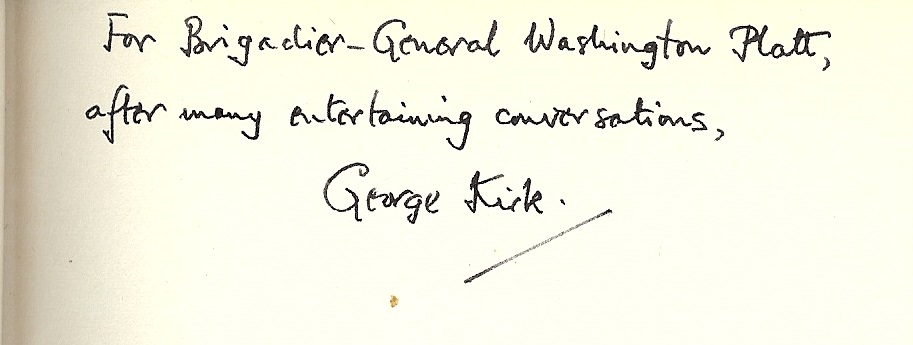 For Brigadier-General Washington Platt,
after many entertaining conversations,
George Kirk.